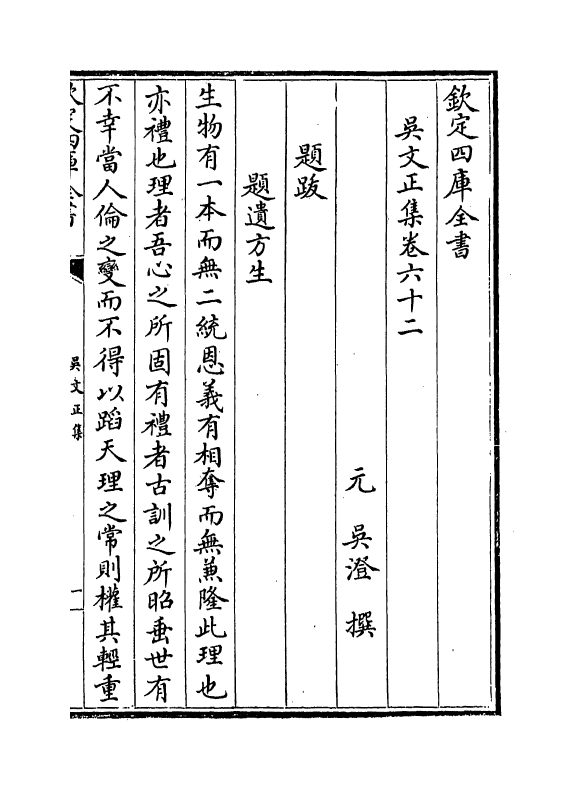 欽定四庫全書
吳文正集卷六十二
元 吳澄 撰
題跋
題遺方生
生物有一本而無二統恩義有相奪而無兼隆此理也
亦禮也理者吾心之所固有禮者古訓之所昭垂世有
不幸當人倫之變而不得以蹈天理之常則權其輕重
欽定四庫全書
吳文正集